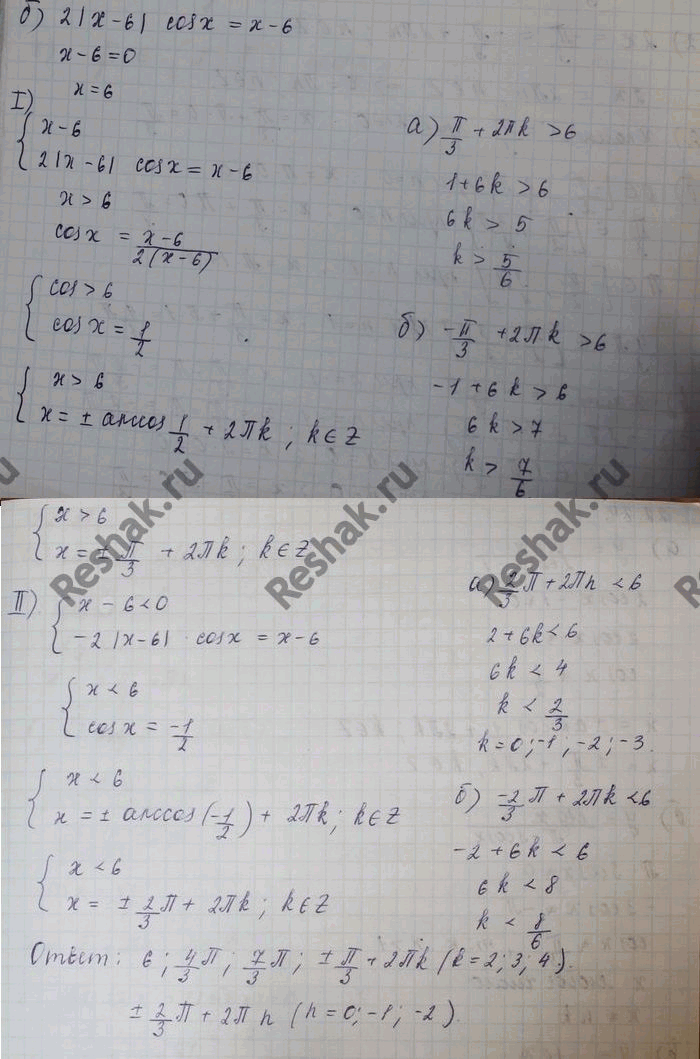 б) 2|x-6| cosx = x-6
x-6=0
x=6
I)
{ x-6
2|x-6| cosx = x-6
x > 6
cosx = x-6 / 2(x-6)
{ cos > 6
cosx = 1/2
{ x > 6
x = ± arccos 1/2 + 2πk ; k∈Z
а) π/3 + 2πk > 6
1+6k > 6
6k > 5
k > 5/6
б) -π/3 + 2πk > 6
-1+6k > 6
6k > 7
k > 7/6
{ x > 6
x = ± π/3 + 2πk ; k∈Z
II) { x - 6 < 0
-2|x-6| · cosx = x-6
{ x < 6
cosx = -1/2
{ x < 6
x = ± arccos(-1/2) + 2πk ; k∈Z
{ x < 6
x = ± 2/3 π + 2πk ; k∈Z
а) 2/3 π + 2πn < 6
2+6k < 6
6k < 4
k < 2/3
k=0; -1; -2; -3.
б) -2/3 π + 2πk < 6
-2+6k < 6
6k < 8
k < 8/6
Ответ: 6; 4/3 π; 7/3 π; ± π/3 + 2πk (k=2; 3; 4).
± 2/3 π + 2πn (n=0; -1; -2).
Reshak.ru
Reshak.ru
Reshak.ru